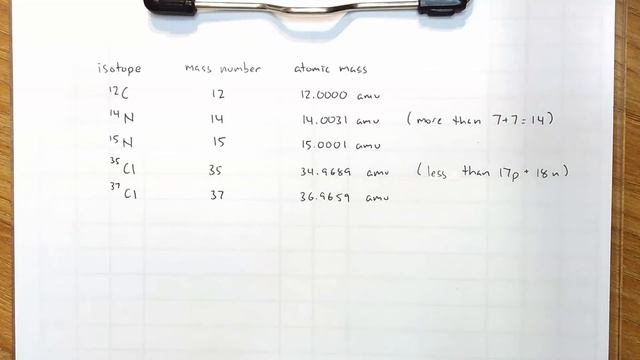 isotope mass number atomic mass
¹²C 12 12.0000 amu
¹⁴N 14 14.0031 amu (more than 7+7=14)
¹⁵N 15 15.0001 amu
³⁵Cl 35 34.9689 amu (less than 17p + 18n)
³⁷Cl 37 36.9659 amu